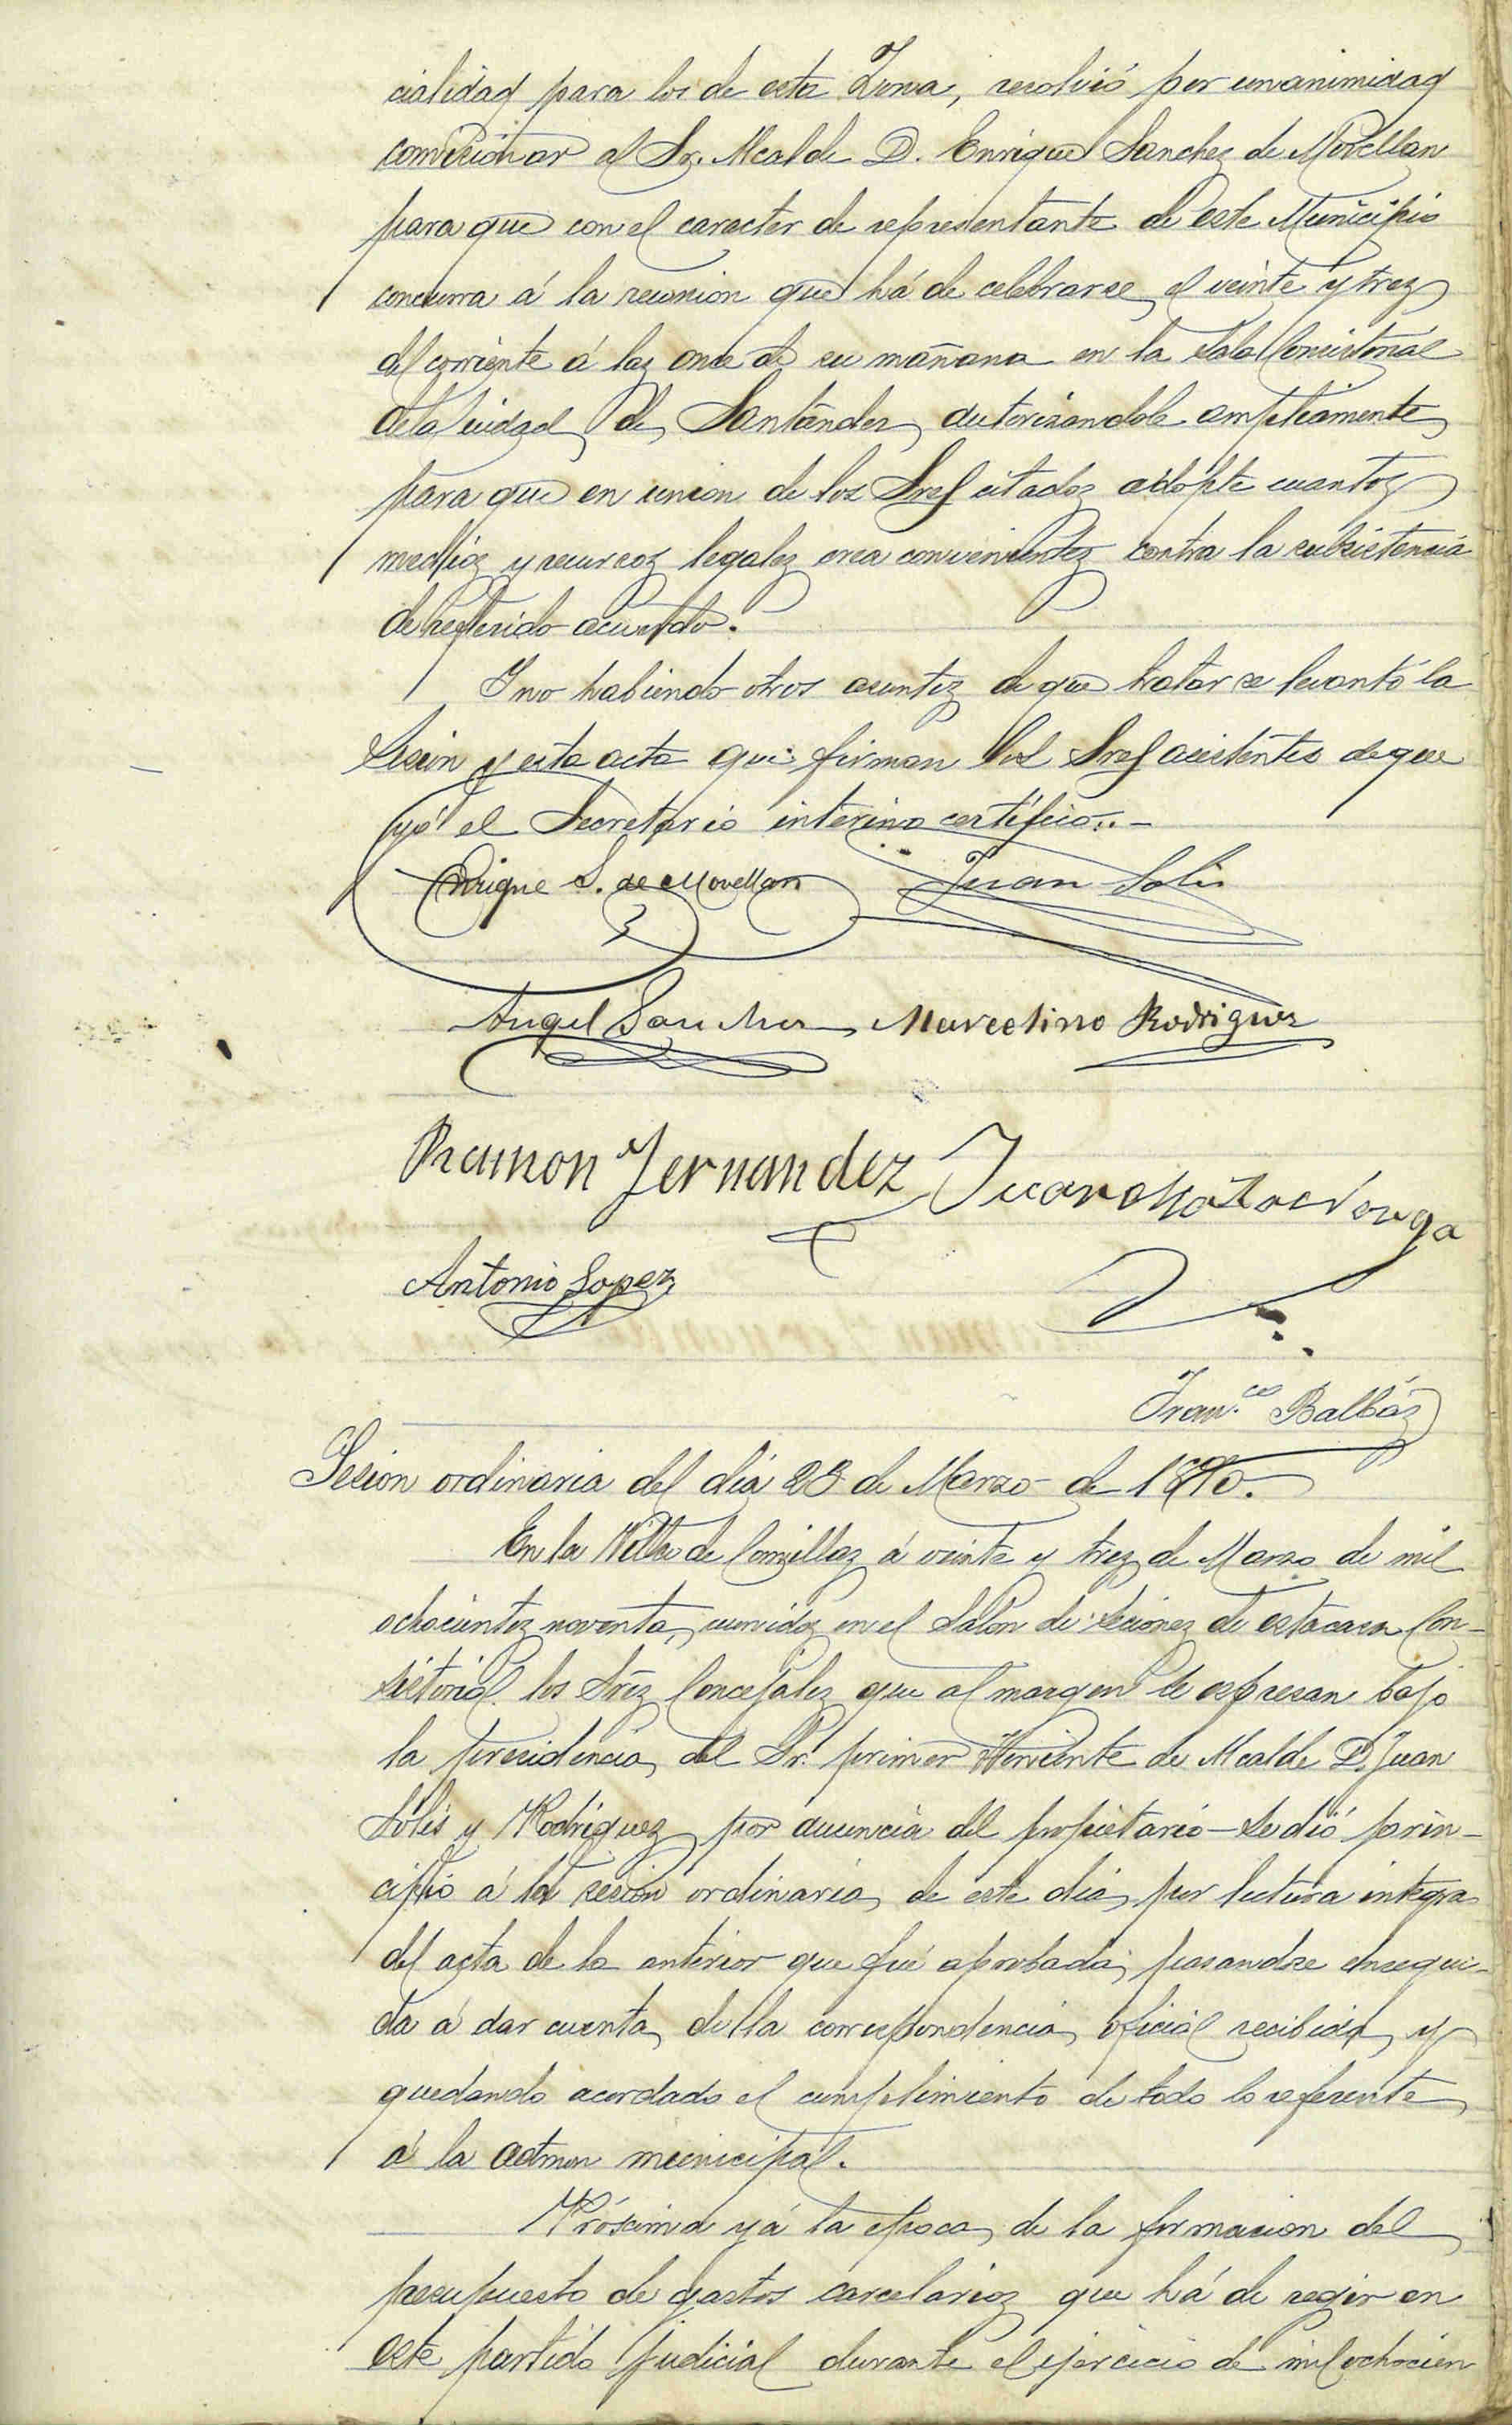 cialidad para los de esta Zona, resolvió por unanimidad
comisionar al Sr. Alcalde D. Enrique Sanchez de Movellan
para que con el caracter de representante de este Municipio
concurra á la reunion que há de celebrarse el veinte y tres
del corriente á las once de su mañana en la Sala Consistorial
de la Ciudad de Santander, autorizandole ampliamente
para que en union de los Sres citados adopte cuantos
medios y recursos legales crea convenientes contra la subsistencia
del referido acuerdo.
Y no habiendo otros asuntos de que tratar se levantó la
Sesion y esta acta que firman los Sres asistentes de que
yó el Secretario interino certifico.-
Enrique S. de Movellan Juan Solis
Angel Sanchez Marcelino Rodriguez
Ramon Fernandez Juan
Antonio Lopez
Fran.co Balbás
Sesion ordinaria del dia 23 de Marzo de 1890.
En la Villa de Comillas á veinte y tres de Marzo de mil
ochocientos noventa, reunidos en el Salon de Sesiones de esta casa Con-
sistorial los Sres Concejales que al margen se espresan bajo
la presidencia del Sr. primer Teniente de Alcalde D. Juan
Sólis y Rodriguez por ausencia del propietario se dió prin-
cipio á la sesion ordinaria de este dia por lectura integra
del acta de la anterior que fué aprobada, pasandose ensegui-
da á dar cuenta de la correspondencia oficial recibida y
quedando acordado el cumplimiento de todo lo referente
á la admon municipal.
Prósima yá la epoca de la formacion del
presupuesto de gastos carcelarios que há de regir en
este partido judicial durante el ejercicio de mil ochocien